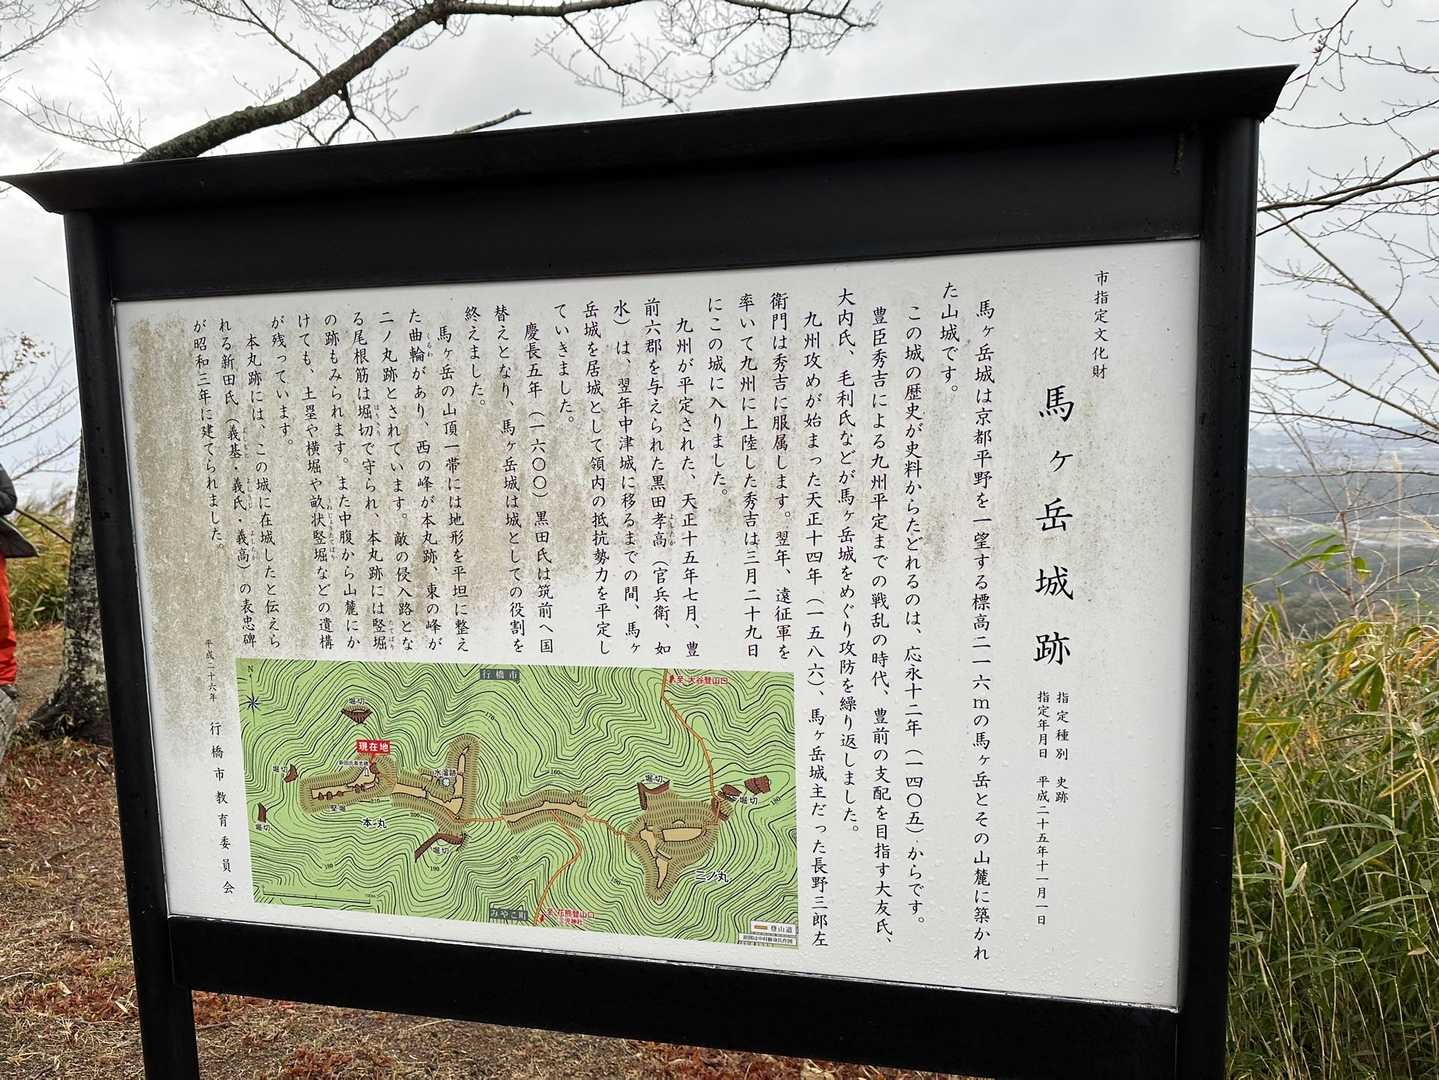 市指定文化財
馬ヶ岳城跡
指定種別 史跡
指定年月日 平成二十五年十一月一日
馬ヶ岳城は京都平野を一望する標高二一六mの馬ヶ岳とその山麓に築かれ
た山城です。
この城の歴史が史料からたどれるのは、応永十二年（一四〇五）からです。
豊臣秀吉による九州平定までの戦乱の時代、豊前の支配を目指す大友氏、
大内氏、毛利氏などが馬ヶ岳城をめぐり攻防を繰り返しました。
九州攻めが始まった天正十四年（一五八六）、馬ヶ岳城主だった長野三郎左
衛門は秀吉に服属します。翌年、遠征軍を
率いて九州に上陸した秀吉は三月二十九日
にこの城に入りました。
九州が平定された、天正十五年七月、豊
前六郡を与えられた黒田孝高（官兵衛、如
水）は、翌年中津城に移るまでの間、馬ヶ
岳城を居城として領内の抵抗勢力を平定し
ていきました。
慶長五年（一六〇〇）黒田氏は筑前へ国
替えとなり、馬ヶ岳城は城としての役割を
終えました。
馬ヶ岳の山頂一帯には地形を平坦に整え
た曲輪があり、西の峰が本丸跡、東の峰が
二ノ丸跡とされています。敵の侵入路とな
る尾根筋は堀切で守られ、本丸跡には竪堀
の跡もみられます。また中腹から山麓にか
けても、土塁や横堀や畝状竪堀などの遺構
が残っています。
本丸跡には、この城に在城したと伝えら
れる新田氏（義基・義氏・義高）の表忠碑
が昭和三年に建てられました。
平成二十六年 行橋市教育委員会
N
行橋市
至 大谷登山口
堀切
現在地
新田氏表忠碑
水溜跡
堀切
竪堀
本丸
堀切
堀切
堀切
堀切
二ノ丸
みやこ町
登山道